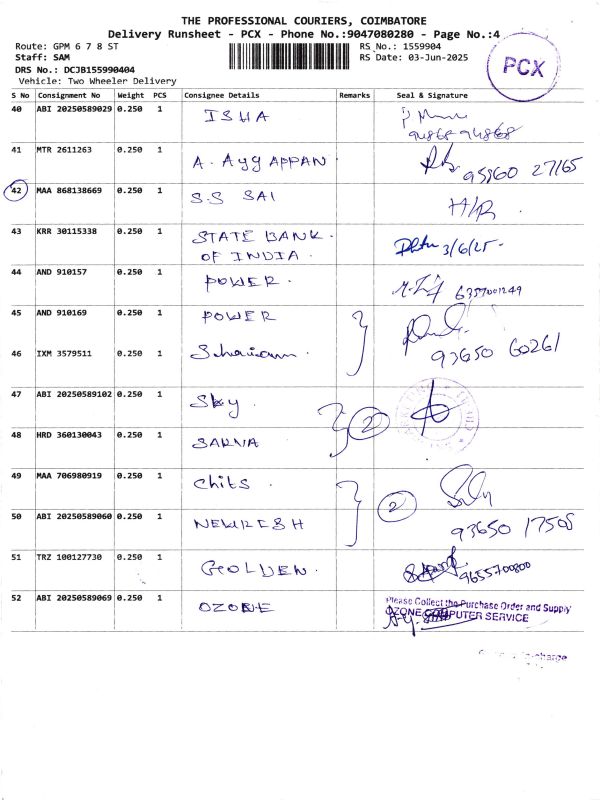 THE PROFESSIONAL COURIERS, COIMBATORE
Delivery Runsheet - PCX - Phone No.:9047080280 - Page No.:4
Route: GPM 6 7 8 ST
RS No.: 1559904
Staff: SAM
RS Date: 03-Jun-2025
DRS No.: DCJB155990404
Vehicle: Two Wheeler Delivery
PCX
S No Consignment No Weight PCS Consignee Details Remarks Seal & Signature
40 ABI 20250589029 0.250 1 ISHA
94868 94868
41 MTR 2611263 0.250 1 A. Ayyappan 95960 27165
42 MAA 868138669 0.250 1 S.S SAI H/R
43 KRR 30115338 0.250 1 STATE BANK OF INDIA. 3/6/25-
44 AND 910157 0.250 1 POWER. 6357001249
45 AND 910169 0.250 1 POWER
46 IXM 3579511 0.250 1 93650 60261
47 ABI 20250589102 0.250 1 Sky. 2
48 HRD 360130043 0.250 1 SARVA
49 MAA 706980919 0.250 1 Chits. 2
50 ABI 20250589060 0.250 1 93650 17505
51 TRZ 100127730 0.250 1 GOLDEN. 9655700800
52 ABI 20250589069 0.250 1 OZONE
Please Collect the Purchase Order and Supply
OZONE COMPUTER SERVICE